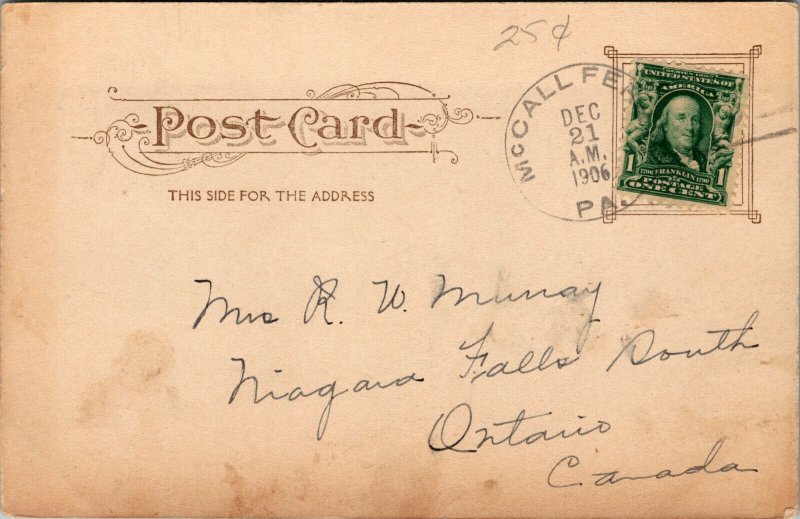 25¢
Post Card
THIS SIDE FOR THE ADDRESS
McCALL FE
DEC
21
A.M.
1906
PA.
UNITED STATES OF
AMERICA
1706 FRANKLIN 1790
1 POSTAGE 1
ONE CENT
Mrs R. W. Murray
Niagara Falls South
Ontario
Canada